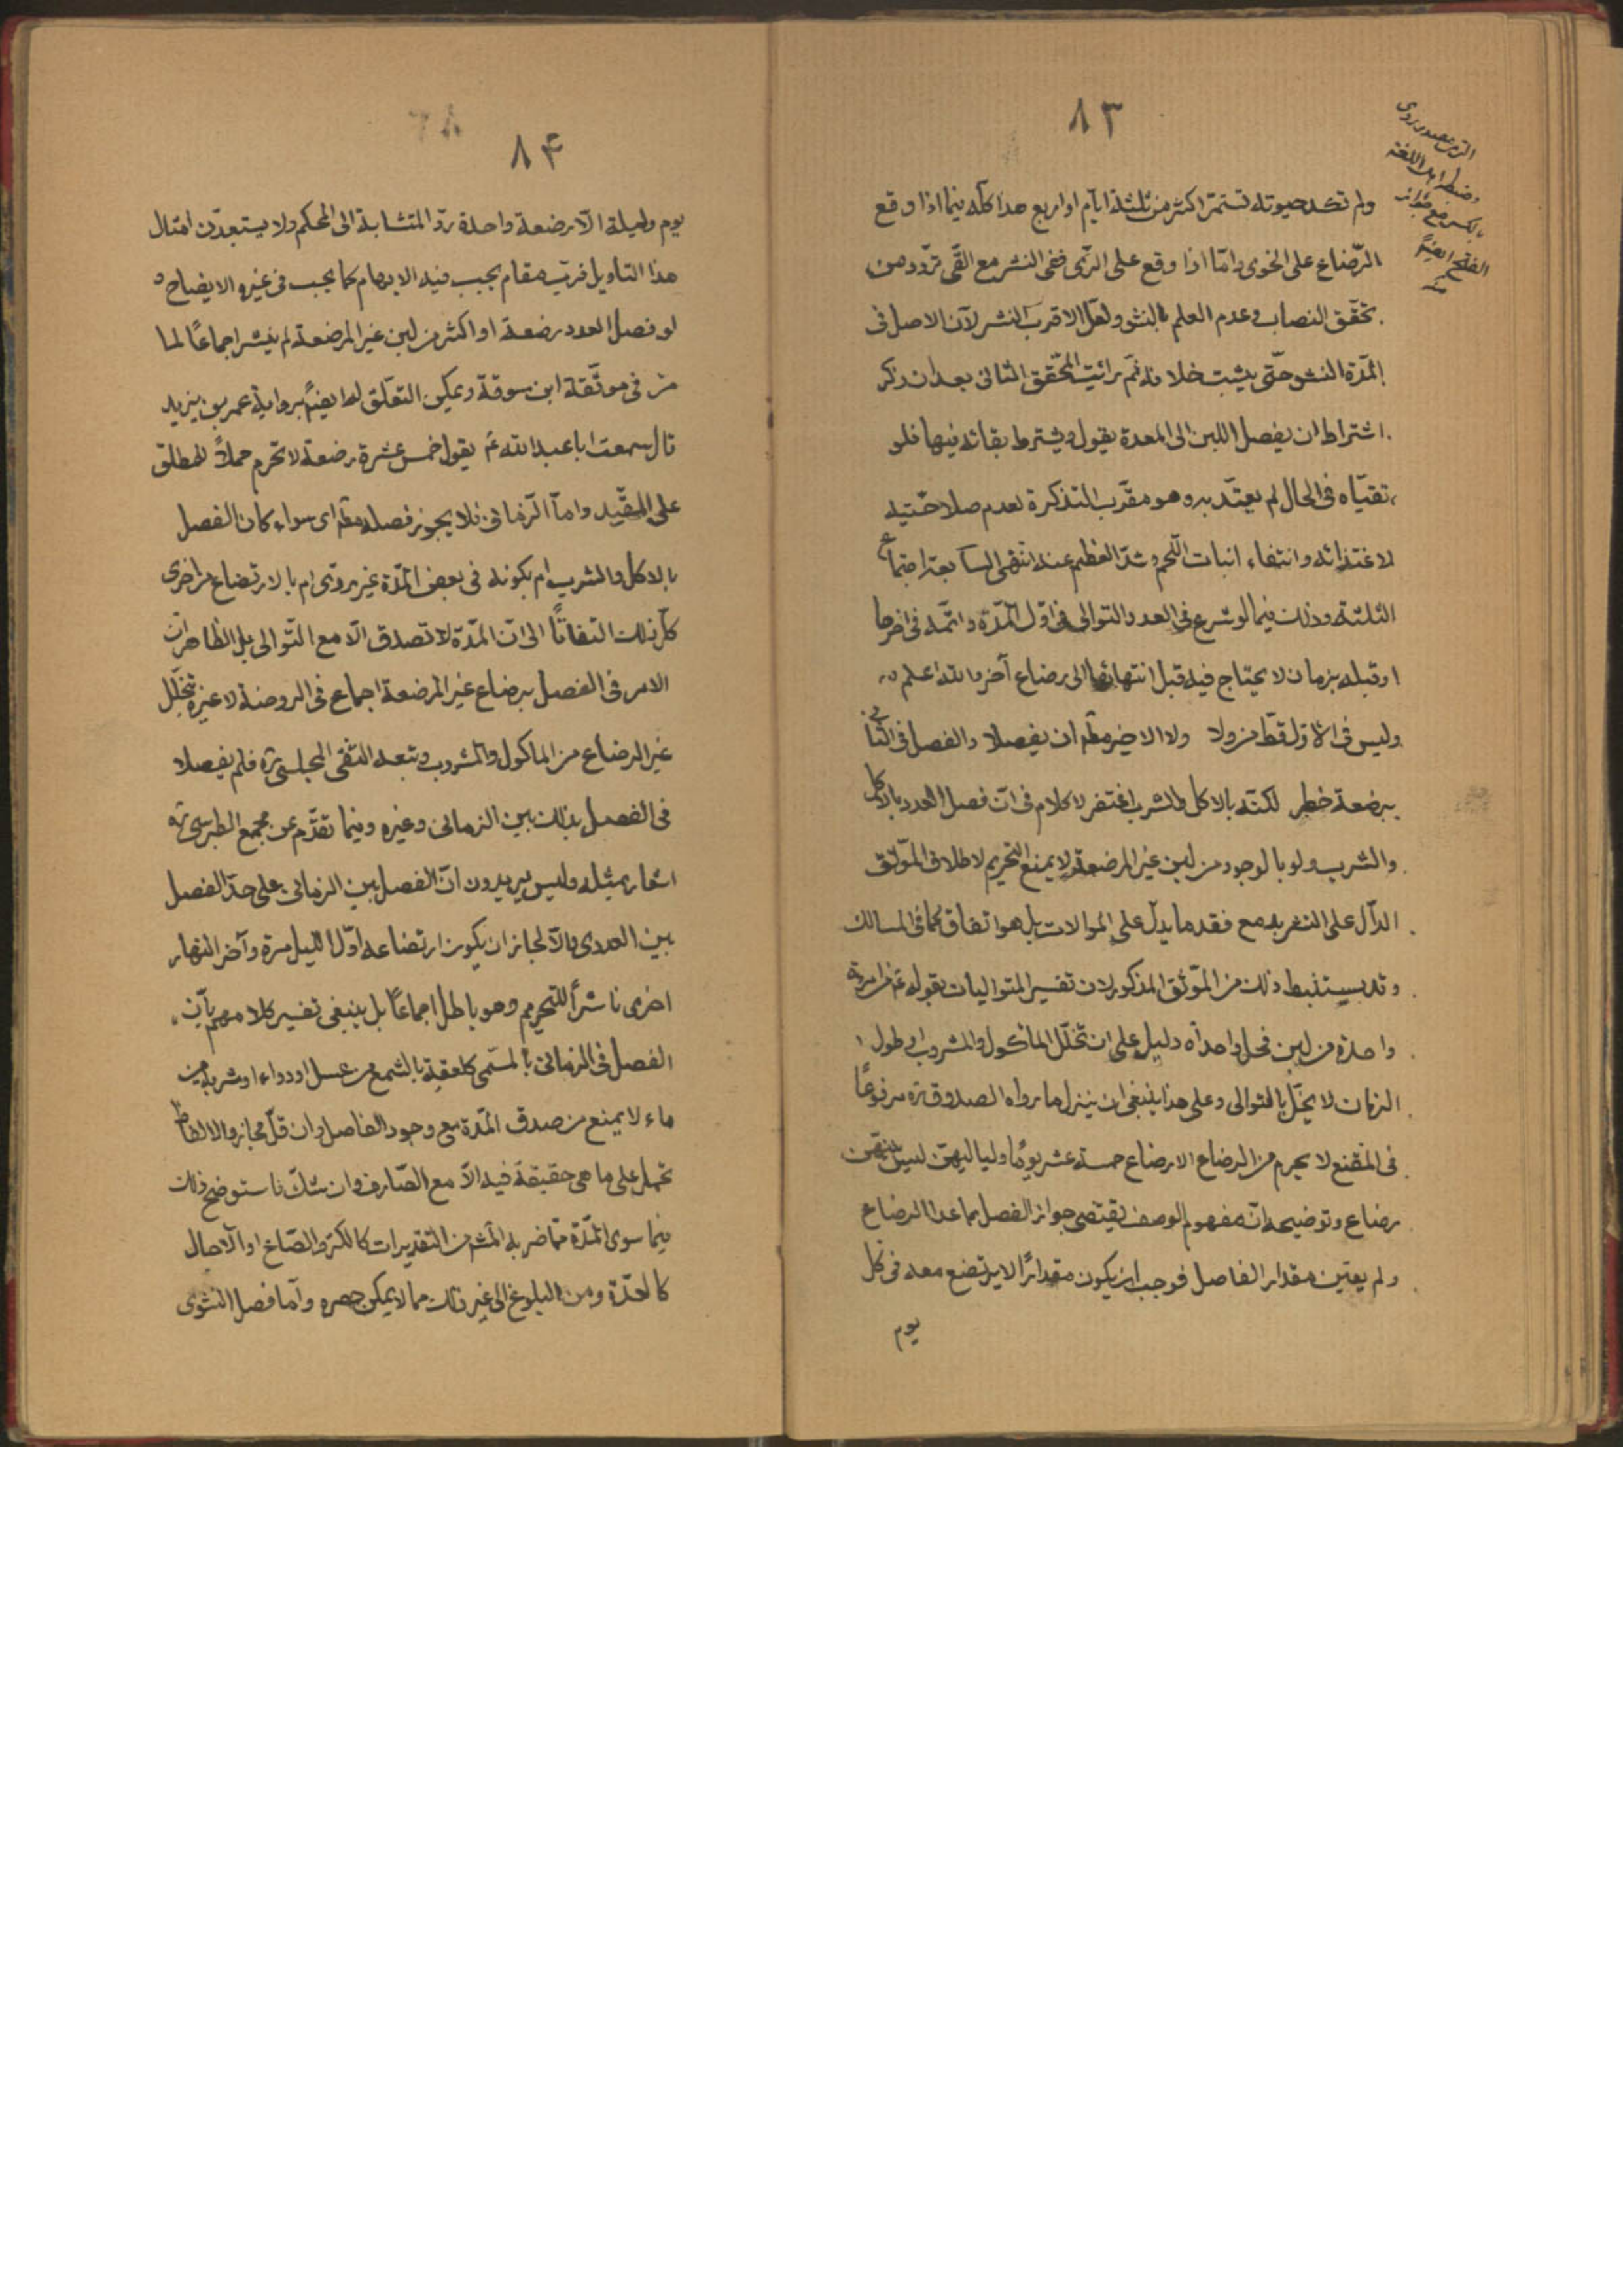 ٨٣
ولم تكد حيوته تستمر اكثر من ثلثة ايام او اربع هذا كله فيما اذا وقع
الرضاع على الخوى واما اذا وقع على الرى ففى النشر مع القى تردد من
تحقق النصاب وعدم العلم بالنشو ولعل الاقرب النشر لان الاصل فى
المدة النشو حتى يثبت خلافه ثم رائيت المحقق الثانى بعد ان ذكر
اشتراط ان يفصل اللبن الى المعدة يقول ويشترط بقائه فيها فلو
تقياه فى الحال لم يعتد به وهو مقرب التذكرة لعدم صلاحيته
لاغتذائه وانتفاء انبات اللحم وشد العظم عند
الثلثة وذلك فيما لو شرع فى العدد والتوالى فى اول المدة واتمه فى اخرها
او قبله بزمان لا يحتاج فيه قبل انتهائها الى رضاع آخر والله اعلم
وليس فى الاول قط من ولا ولا الاخير مطم ان يفصلا والفصل فى الثانى
برضعة خطر لكنه بالاكل والشرب اغتفر لا كلام فى ان فصل العدد بالاكل
والشرب ولو بالوجود من لبن غير المرضعة لا يمنع التحريم لاطلاق الموثق
الدال على النشر به مع فقد ما يدل على الموالات بل هو اتفاق كما فى المسالك
وقد يستنبط ذلك من الموثق المذكور لان تفسير المتواليات بقوله ع من امرءة
واحدة من لبن فحل واحداه دليل على ان تخلل الماكول والمشروب او طول
الزمان لا يخل بالتوالى وعلى هذا ينبغى ان ينزل ما رواه الصدوق ره مرفوعًا
فى المقنع لا يحرم من الرضاع الا رضاع خمسة عشر يومًا ولياليهن ليس بينهن
رضاع وتوضيحه ان مفهوم الوصف يقتضى جواز الفصل بما عدا الرضاع
ولم يعين مقدار الفاصل فوجب ان يكون مقدارًا لا يرتضع معه فى كل
يوم
وضبطه اهل اللغة
بالكسر مع جواز
الفتح ايضًا
منه
٨۴
يوم وليلة الا رضعة واحدة رد المتشابة الى المحكم ولا يستبعدن امثال
هذا التاويل فرب مقام يجب فيه الابهام كما يجب فى غيره الايضاح و
لو فصل العدد برضعة او اكثر من لبن غير المرضعة لم ينشر اجماعًا لما
مر فى موثقة ابن سوقة ويمكن التعلق له ايضًا برواية عمر بن يزيد
قال سمعت ابا عبدالله ع يقول خمس عشرة رضعة لا تحرم حملًا للمطلق
على المقيد واما الزمانى فلا يجوز فصله مطم اى سواء كان الفصل
بالاكل والشرب ام بكونه فى بعض المدة غير روى ام بالارتضاع من اخرى
كل ذلك التفاتًا الى ان المدة لا تصدق الا مع التوالى بل الظاهر ان
الامر فى الفصل برضاع غير المرضعة اجماع فى الروضة لا عبرة بتخلل
غير الرضاع من الماكول والمشروب وتبعه التقى المجلسى ره فلم يفصلا
فى الفصل بذلك بين الزمانى وغيره وفيما تقدم عن مجمع الطبرسى ره
اشعار بمثله وليس يريدون ان الفصل بين الزمانى على حد الفصل
بين العددى والا لجاز ان يكون ارتضاعه اول الليل مرة وآخر النهار
اخرى ناشرًا للتحريم وهو باطل اجماعًا بل ينبغى تفسير كلامهم بان
الفصل فى الزمانى بالمسمى كلعقة بالشمع من عسل او دواء او شربة من
ماء لا يمنع من صدق المدة مع وجود الفاصل وان قل مجاز والالفاظ
تحمل على ما هى حقيقة فيه الا مع الصارف وان شك فاستوضح ذلك
فيما سوى المدة مما ضربه الشرع من التقديرات كالكر والصاع او الآجال
كالعدة ومن البلوغ الى غير ذلك مما لا يمكن حصره واما فصل النشوى